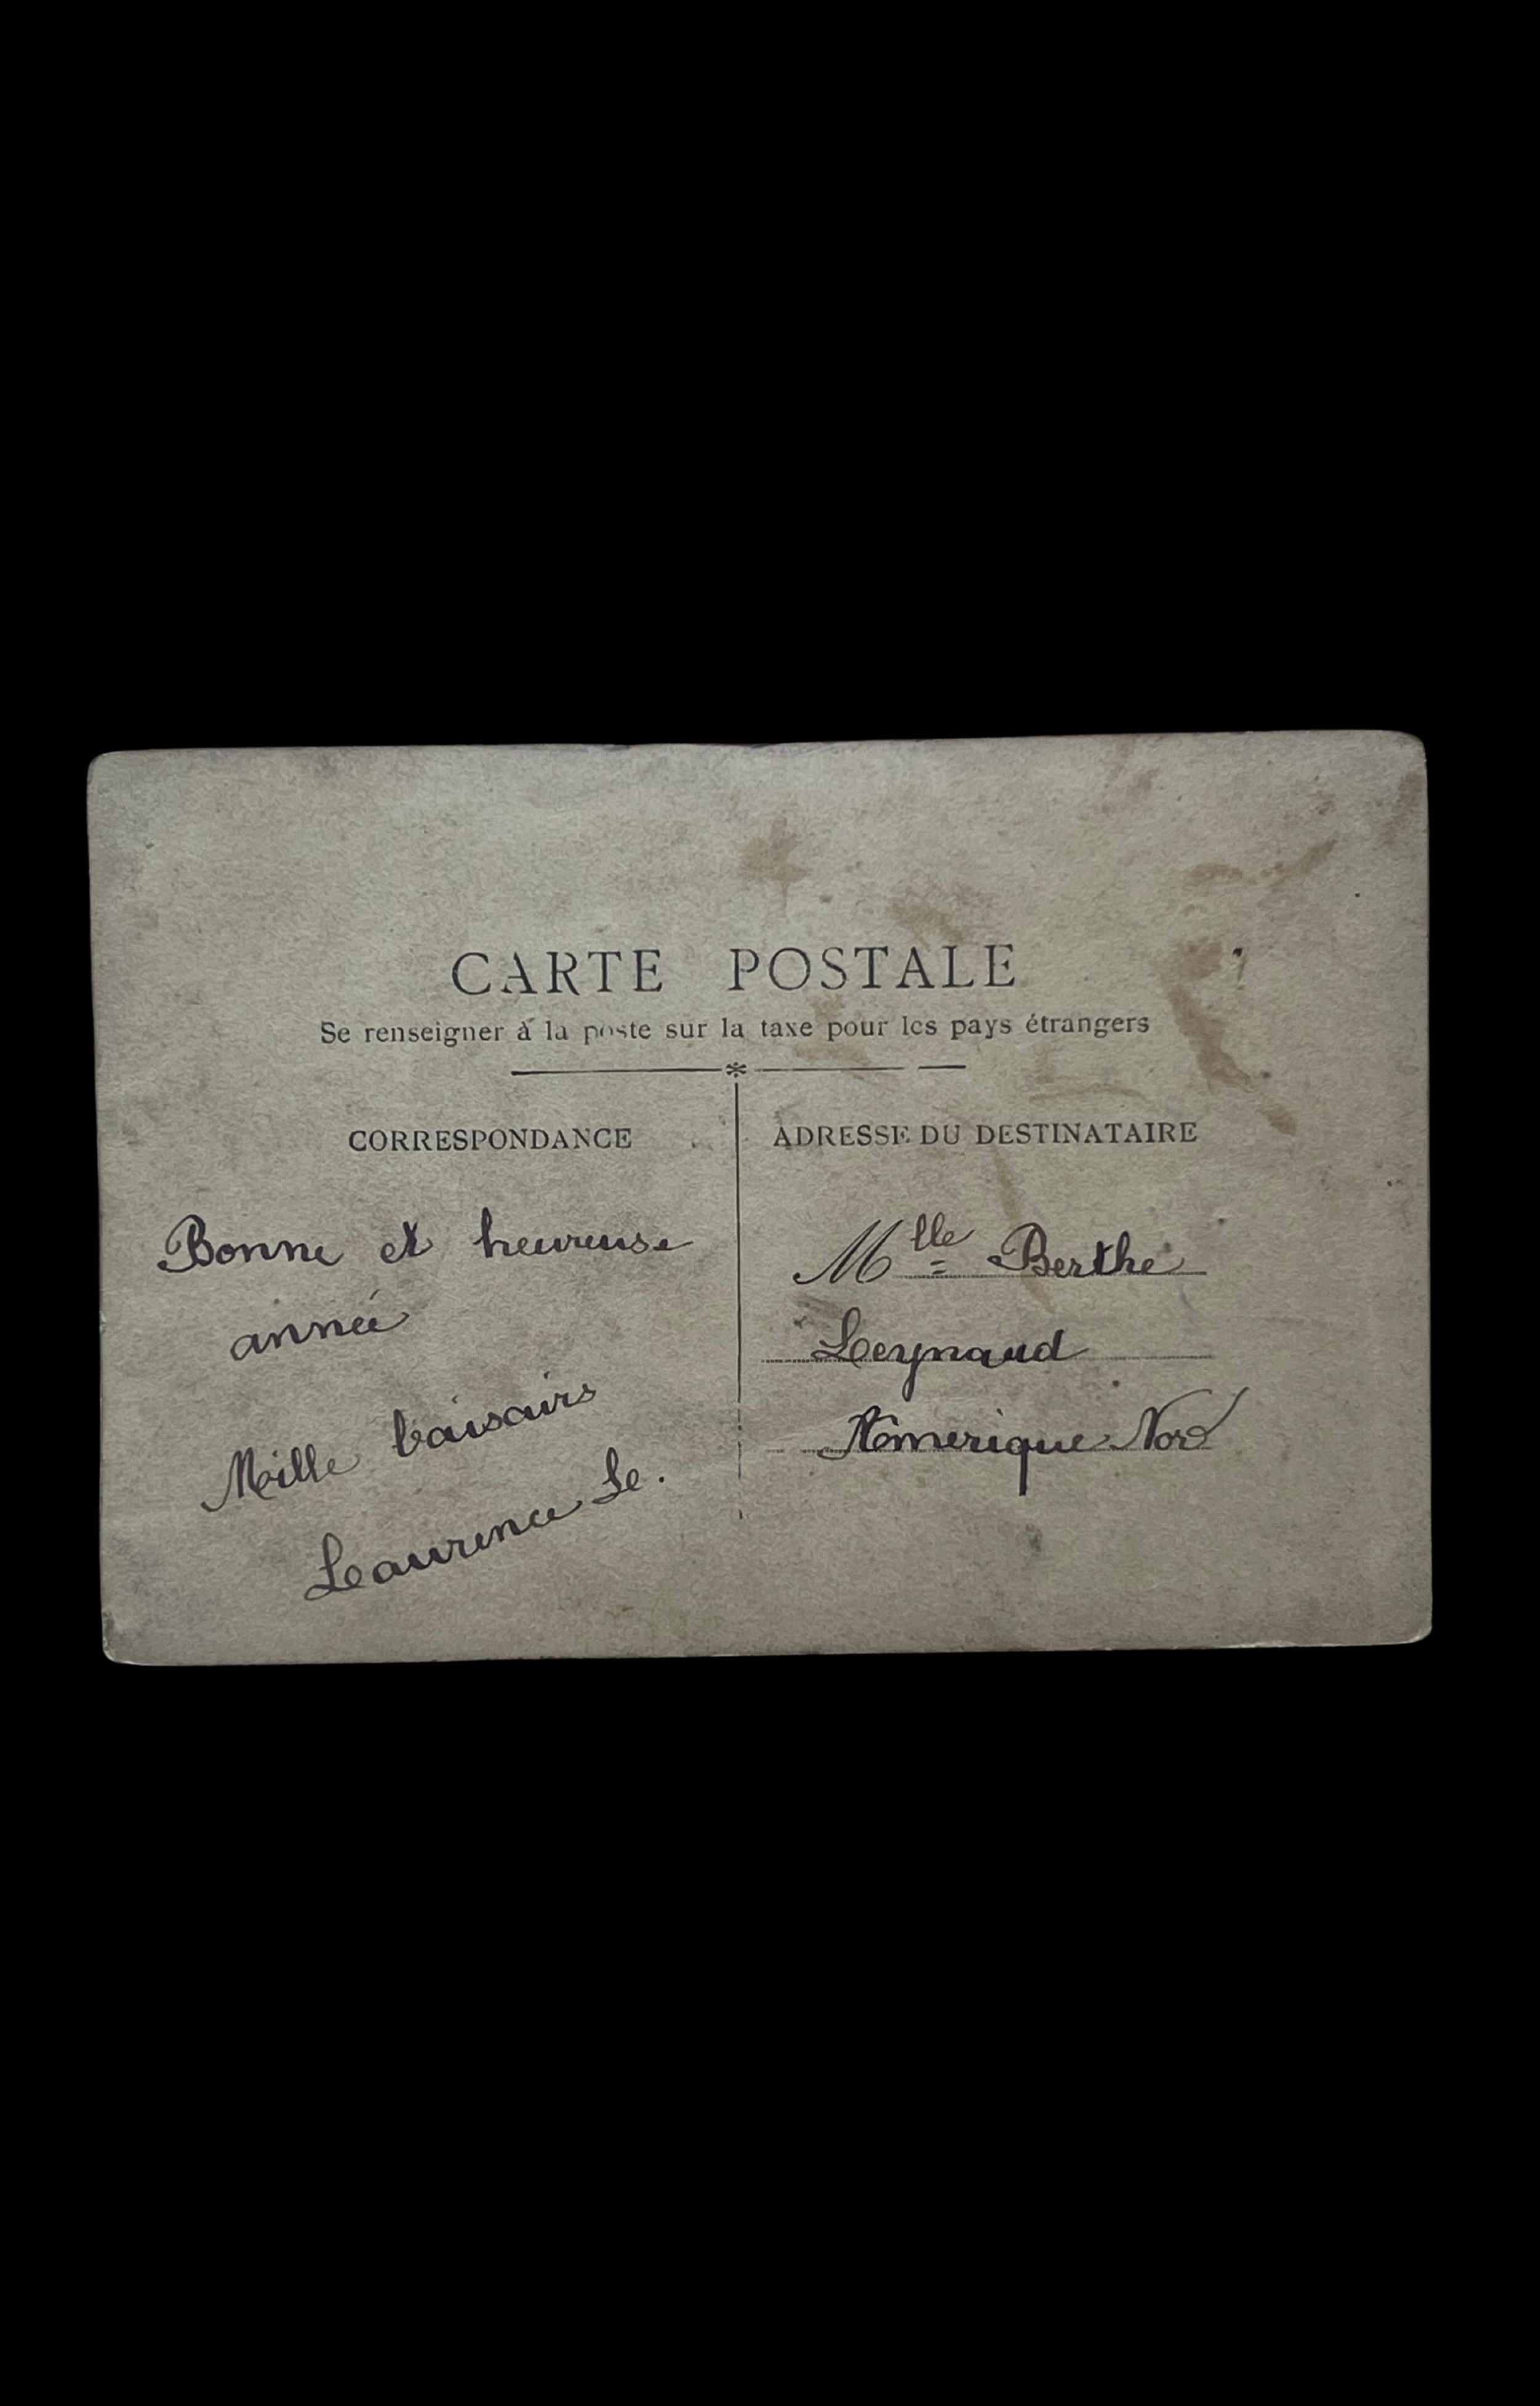 CARTE POSTALE
Se renseigner à la poste sur la taxe pour les pays étrangers
CORRESPONDANCE
Bonne et heureuse
année
Mille baisairs
Laurence Le.
ADRESSE DU DESTINATAIRE
Mlle Berthe
Leynaud
Amerique Nord